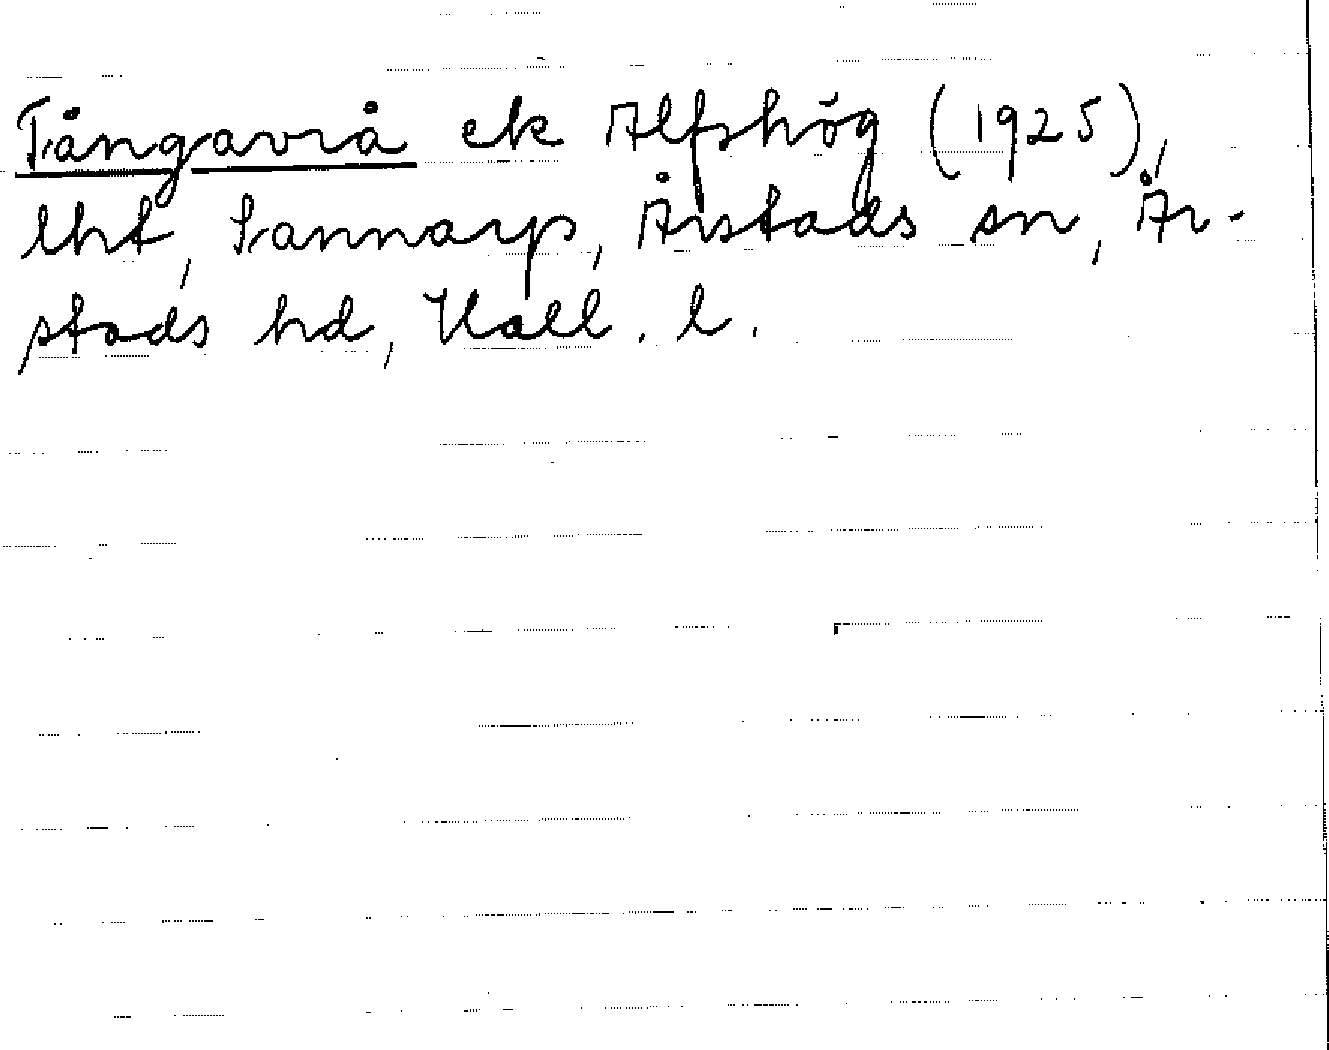 Tångavrå ek Alfshög (1925),
lht, Trannarp, Årstads sn, År-
stads hd, Hall. l.